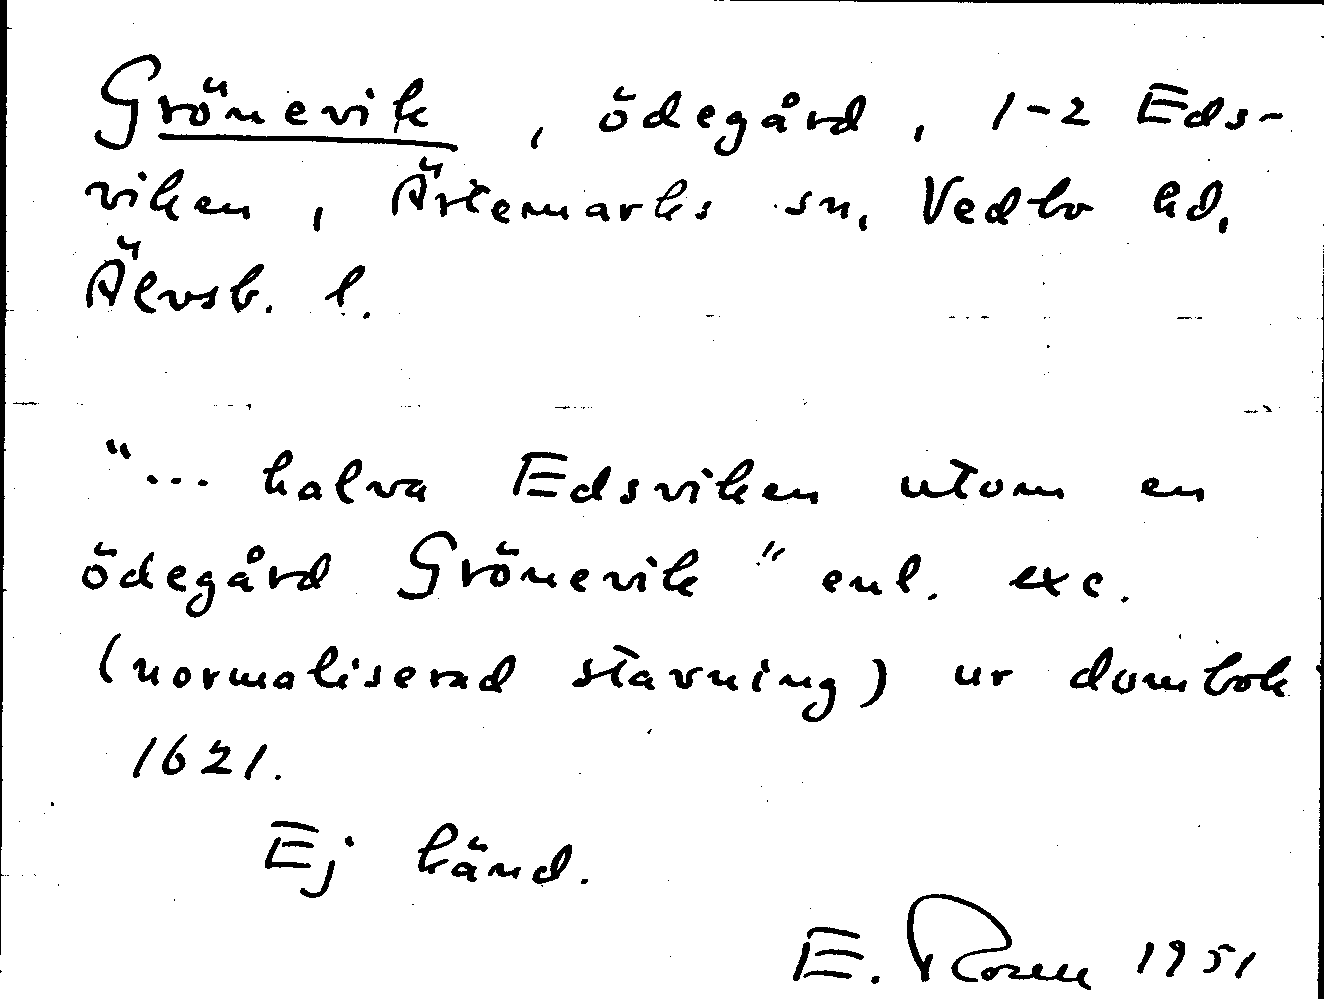 Grönevik, ödegård, 1-2 Eds-
viken, Ärtemarks sn, Vedbo hd,
Älvsb. l.
"... halva Edsviken utom en
ödegård Grönevik" enl. exc.
(normaliserad stavning) ur dombok
1621.
Ej känd.
E. Rosell 1951